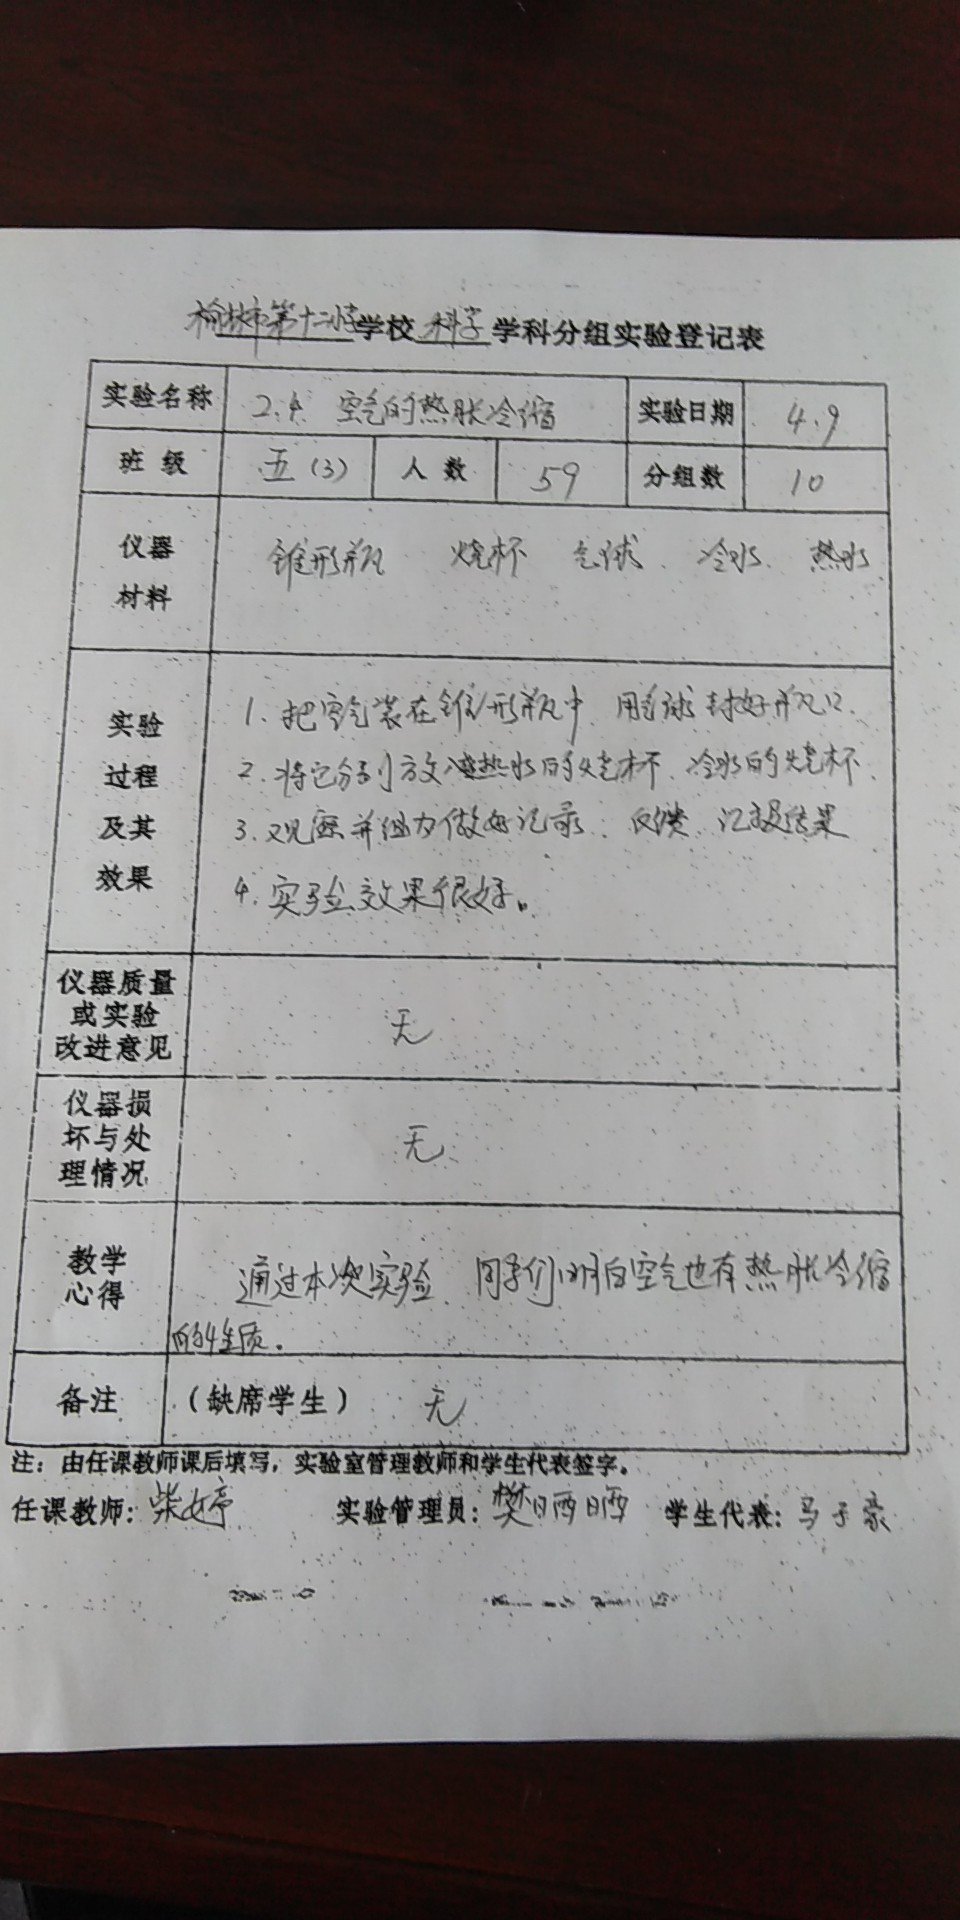 榆林市第十二小学校科学学科分组实验登记表
实验名称 2.4 空气的热胀冷缩 实验日期 4.9
班级 五(3) 人数 59 分组数 10
仪器材料 锥形瓶 烧杯 气球 冷水 热水
实验过程及其效果
1.把空气装在锥形瓶中 用气球封好瓶口.
2.将它分别放进热水的烧杯、冷水的烧杯.
3.观察并组内做好记录、反馈、汇报结果
4.实验效果很好。
仪器质量
或实验
改进意见
无
仪器损
坏与处
理情况
无
教学
心得
通过本次实验、同学们明白空气也有热胀冷缩
的性质.
备注 (缺席学生) 无
注:由任课教师课后填写,实验室管理教师和学生代表签字。
任课教师:柴婷 实验管理员:樊晒晒 学生代表:马子豪